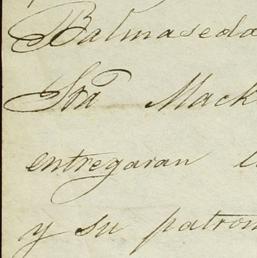 Balmaseda
Sra Mack
entregaran
y su patron